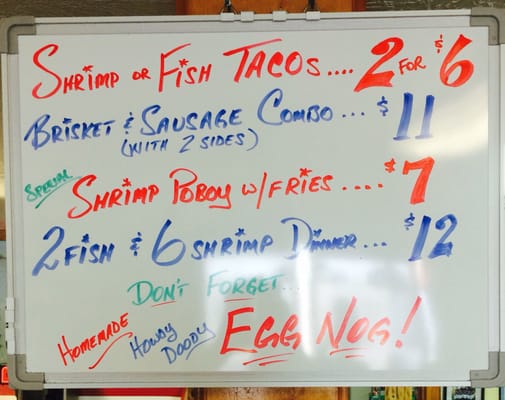 Shrimp or Fish Tacos.... 2 for $6
Brisket & Sausage Combo... $11
(with 2 sides)
Special Shrimp Poboy w/ Fries.... $7
2 Fish & 6 Shrimp Dinner... $12
Don't Forget...
Homemade Howdy Doody Egg Nog!